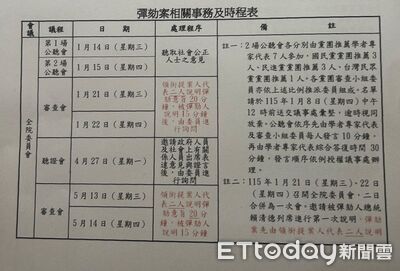 彈劾案相關事務及時程表
會議
議程
日期
處理程序
備註
全院委員會
第1場公聽會
1月14日(星期三)
第2場公聽會
1月15日(星期四)
聽取社會公正
人士之意見
審查會
1月21日(星期三)
1月22日(星期四)
領銜提案人代
表二人說明彈
劾意旨20分
鐘,被彈劾人
說明15分鐘
後,由委員進
行詢問
聽證會
4月27日(星期一)
邀請政府人員
及社會上有關
係人員出席表
達意見與證言
後,由委員詢問
審查會
5月13日(星期三)
5月14日(星期四)
領銜提案人代
表二人說明彈
劾意旨20分
鐘,被彈劾人
說明15分鐘
註一:2場公聽會各分別由黨團推薦學者專
家代表7人參加,國民黨黨團推薦3
人、民進黨黨團推薦3人、台灣民眾
黨黨團推薦1人,各黨團審查小組委
員亦依上述比例推派委員組成。名單
請於115年1月8日(星期四)中午
12時前送交議事處彙整,逾時視同
放棄。公聽會依序先由學者專家代表
及審查小組委員每人發言10分鐘,
再由學者專家代表綜合答復時間30
分鐘,發言順序依例授權議事處辦
理。
註二:115年1月21日(星期三)、22日
(星期四)召開全院委員會,二日
合併為一次會。邀請被彈劾人總統
賴清德列席進行第一次說明,彈劾
案先由領銜提案人代表二人說明
ETtoday新聞雲